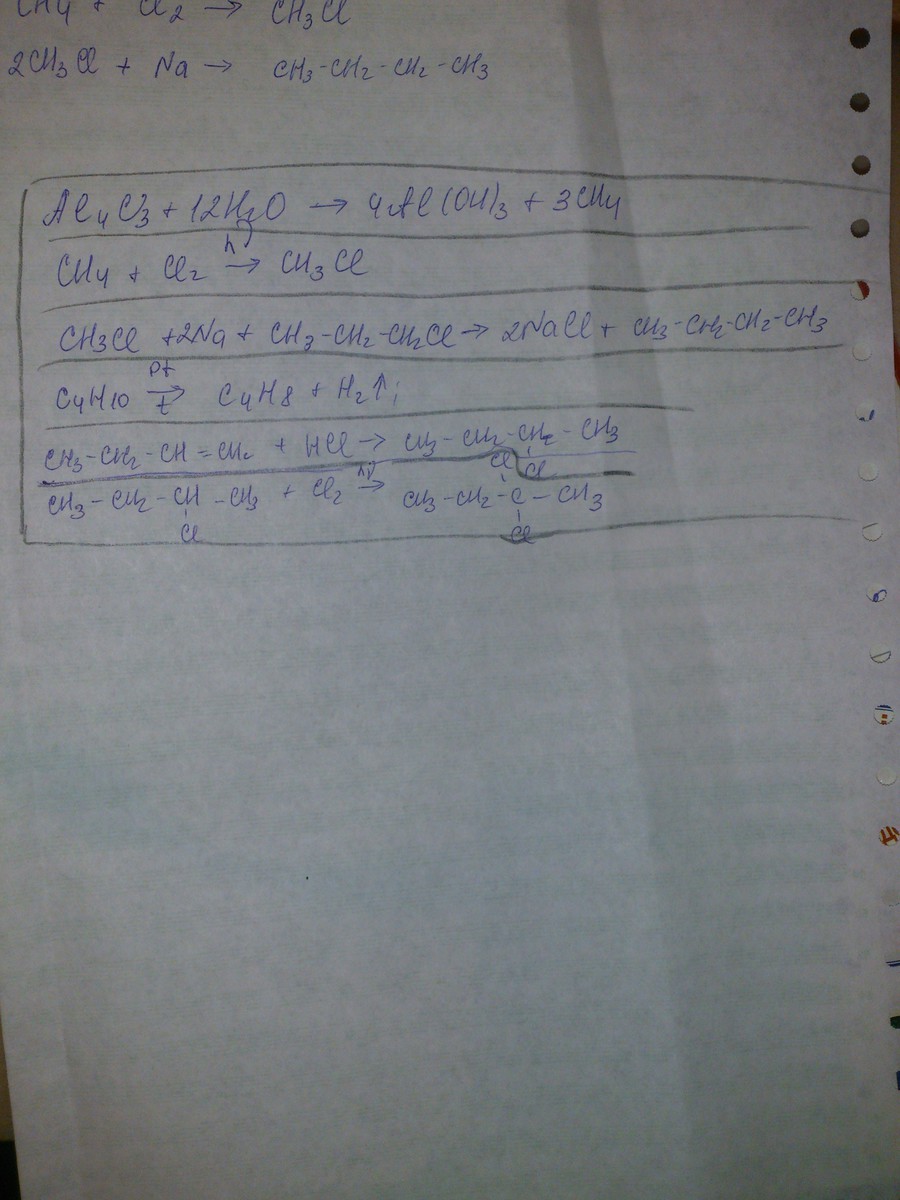 CH4 + Cl2 → CH3Cl
2CH3Cl + Na → CH3-CH2-CH2-CH3
Al4C3 + 12H2O → 4Al(OH)3 + 3CH4
hν
CH4 + Cl2 → CH3Cl
CH3Cl +2Na + CH3-CH2-CH2Cl → 2NaCl + CH3-CH2-CH2-CH3
Pt
C4H10 → C4H8 + H2↑;
t
CH3-CH2-CH=CH2 + HCl → CH3-CH2-CH2-CH3
Cl
Cl
hν
CH3-CH2-CH-CH3 + Cl2 → CH3-CH2-C-CH3
Cl
Cl